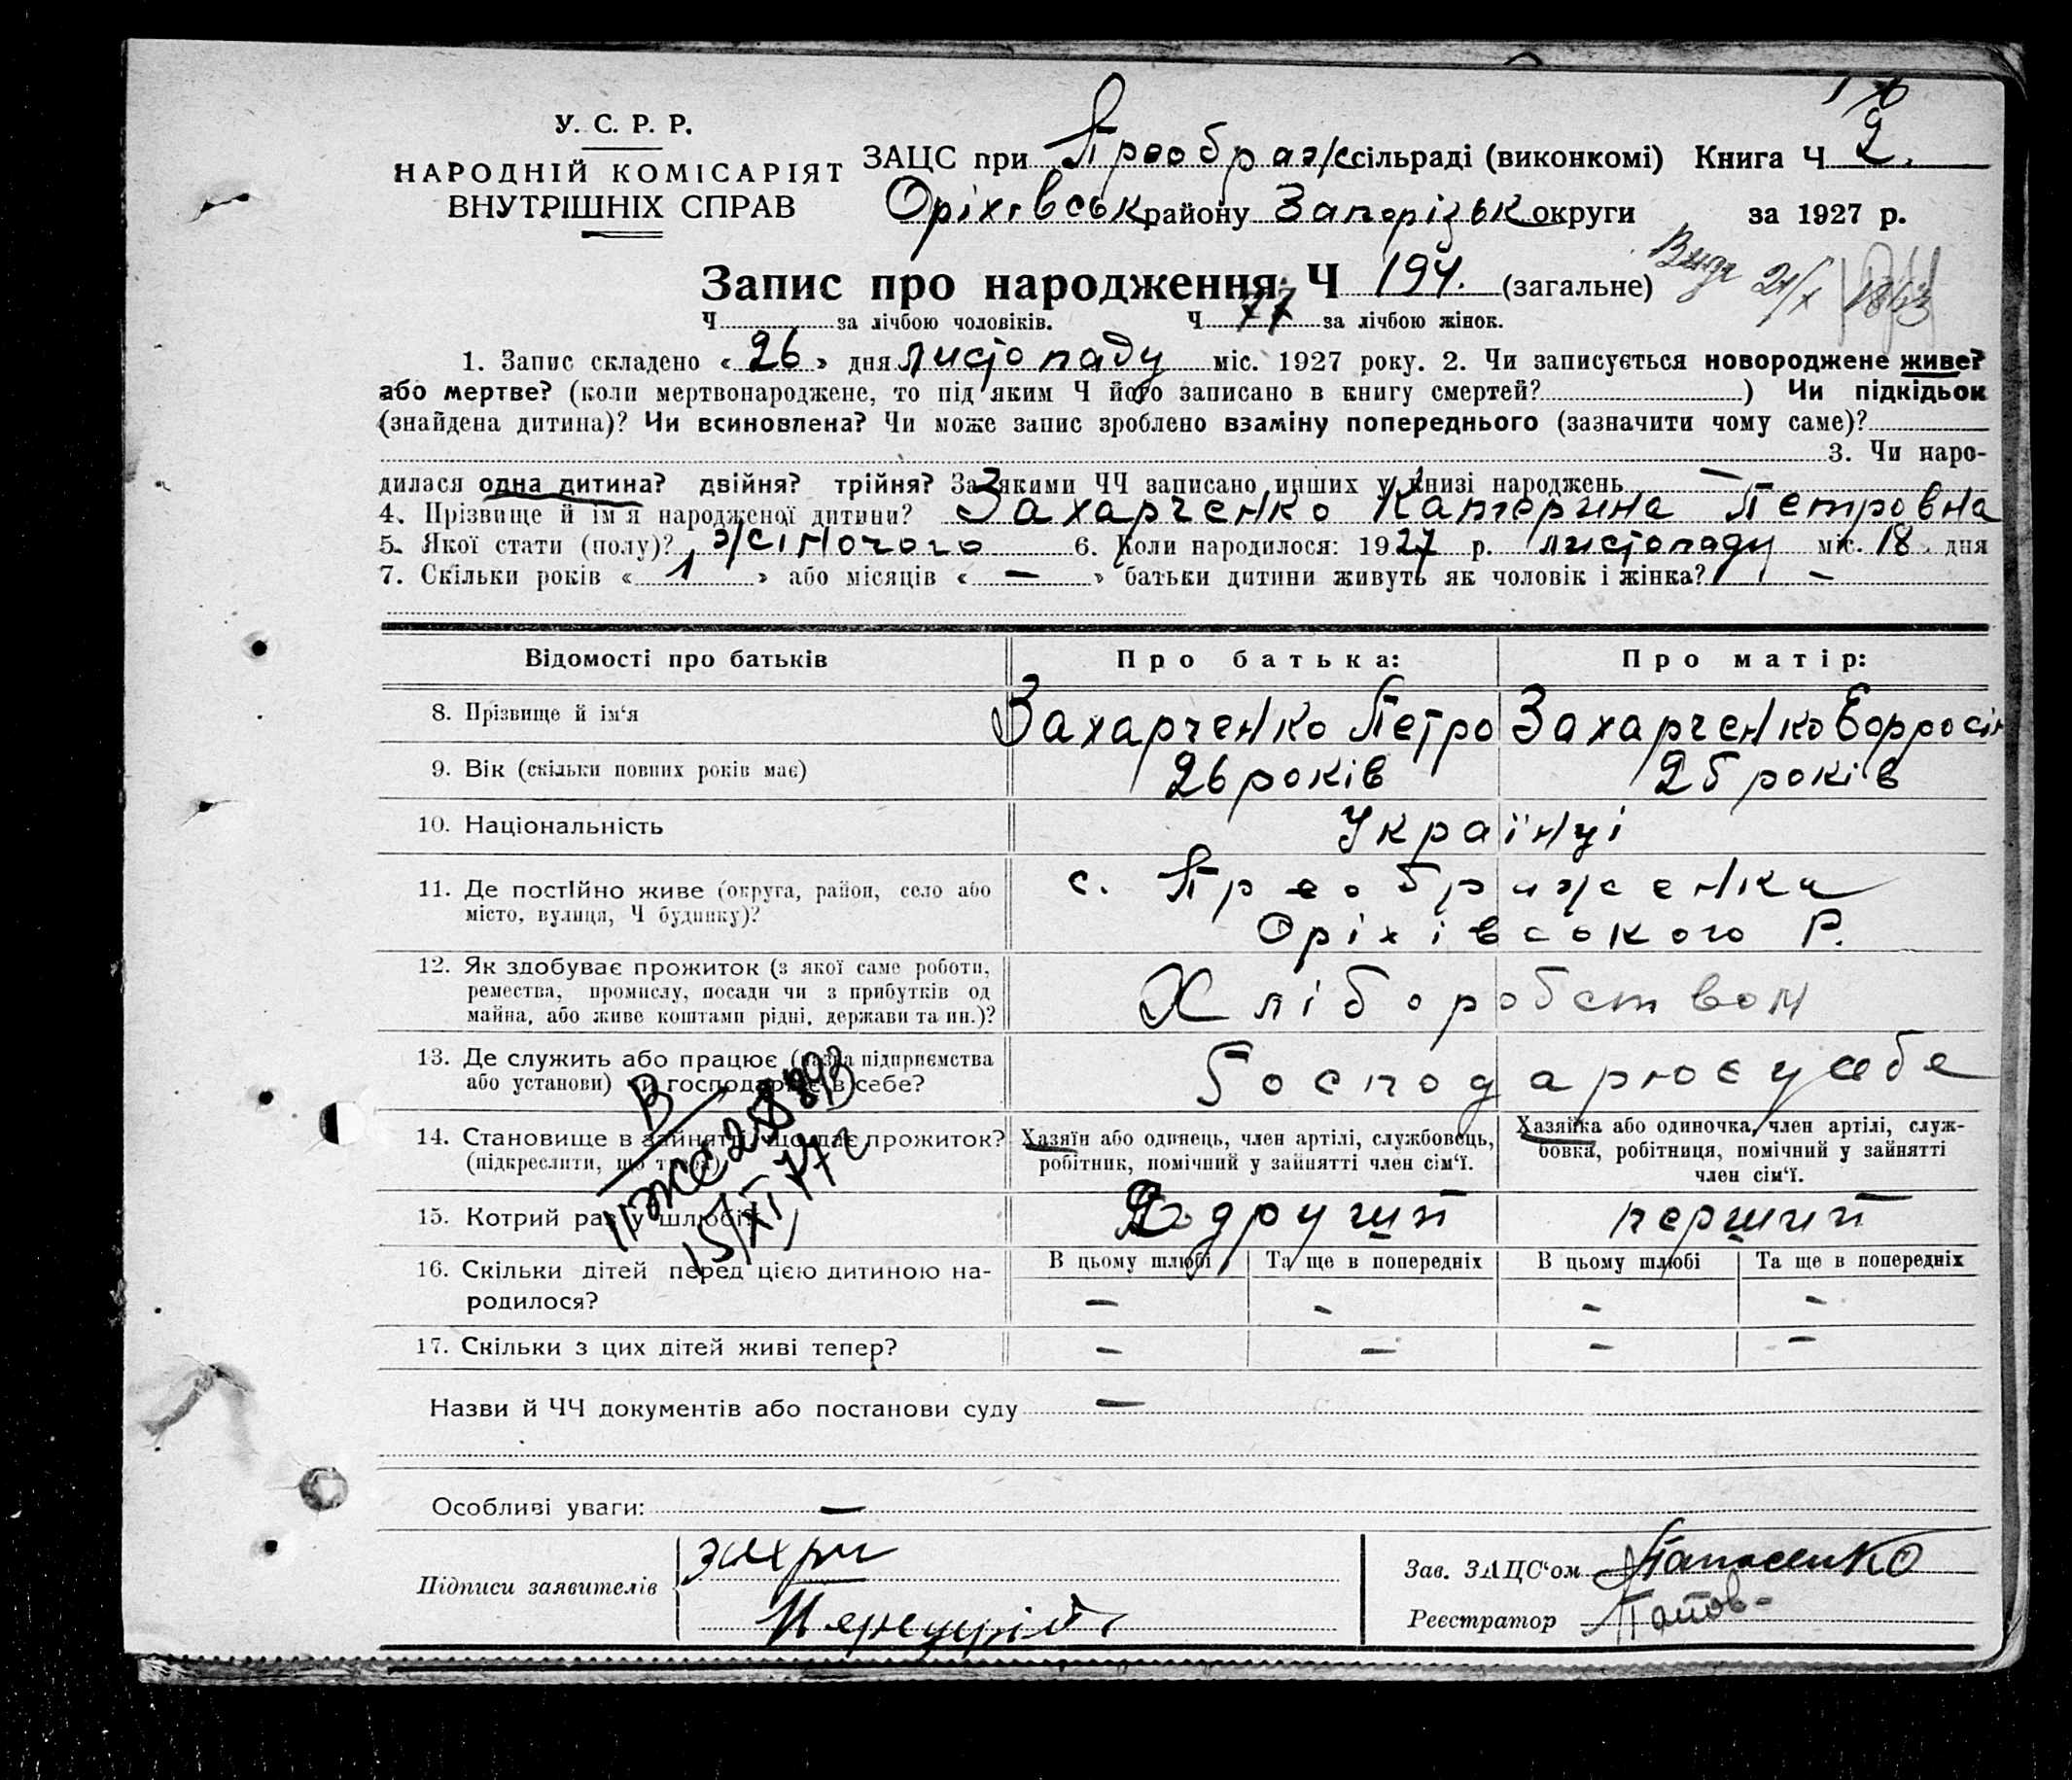 У. С. Р. Р.
НАРОДНІЙ КОМІСАРІЯТ
ВНУТРІШНІХ СПРАВ
ЗАЦС при Преображ сільраді (виконкомі) Книга Ч 2.
Оріхівськ району Запоріжськ округи за 1927 р.
Запис про народження Ч 194. (загальне)
Ч за лічбою чоловіків. Ч 77 за лічбою жінок.
1. Запис складено « 26 » дня листопаду міс. 1927 року. 2. Чи записується новороджене живе?
або мертве? (коли мертвонароджене, то під яким Ч його записано в книгу смертей? ) Чи підкідьок
(знайдена дитина)? Чи всиновлена? Чи може запис зроблено взаміну попереднього (зазначити чому саме)?
3. Чи наро-
дилася одна дитина? двійня? трійня? За якими ЧЧ записано инших у книзі народжень —
4. Прізвище й ім'я народженої дитини? Захарченко Катерина Петровна
5. Якої стати (полу)? жіночого 6. Коли народилося: 1927 р. листопаду міс. 18 дня
7. Скільки років « 1 » або місяців « — » батьки дитини живуть як чоловік і жінка? —
Відомості про батьків Про батька: Про матір:
8. Прізвище й ім'я Захарченко Петро Захарченко Ефросін
9. Вік (скільки повних років має) 26 років 25 років
10. Національність Українці
11. Де постійно живе (округа, район, село або с. Преображенка
місто, вулиця, Ч будинку)? Оріхівського Р.
12. Як здобуває прожиток (з якої саме роботи,
ремества, промислу, посади чи з прибутків од
майна, або живе коштами рідні, держави та ин.)? Хліборобством
13. Де служить або працює (назва підприємства
або установи) чи господарює в себе? Господарює у себе
14. Становище в зайнятті, що дає прожиток?
(підкреслити, що треба)
Хазяїн або одинець, член артілі, службовець,
робітник, помічний у зайнятті член сім'ї.
Хазяйка або одиночка, член артілі, служ-
бовка, робітниця, помічний у зайнятті
член сім'ї.
15. Котрий раз у шлюбі? другий перший
16. Скільки дітей перед цією дитиною на-
родилося?
В цьому шлюбі Та ще в попередніх В цьому шлюбі Та ще в попередніх
— — — —
17. Скільки з цих дітей живі тепер? — — — —
Назви й ЧЧ документів або постанови суду —
Особливі уваги: —
Підписи заявителів
Зав. ЗАЦС'ом
Реєстратор